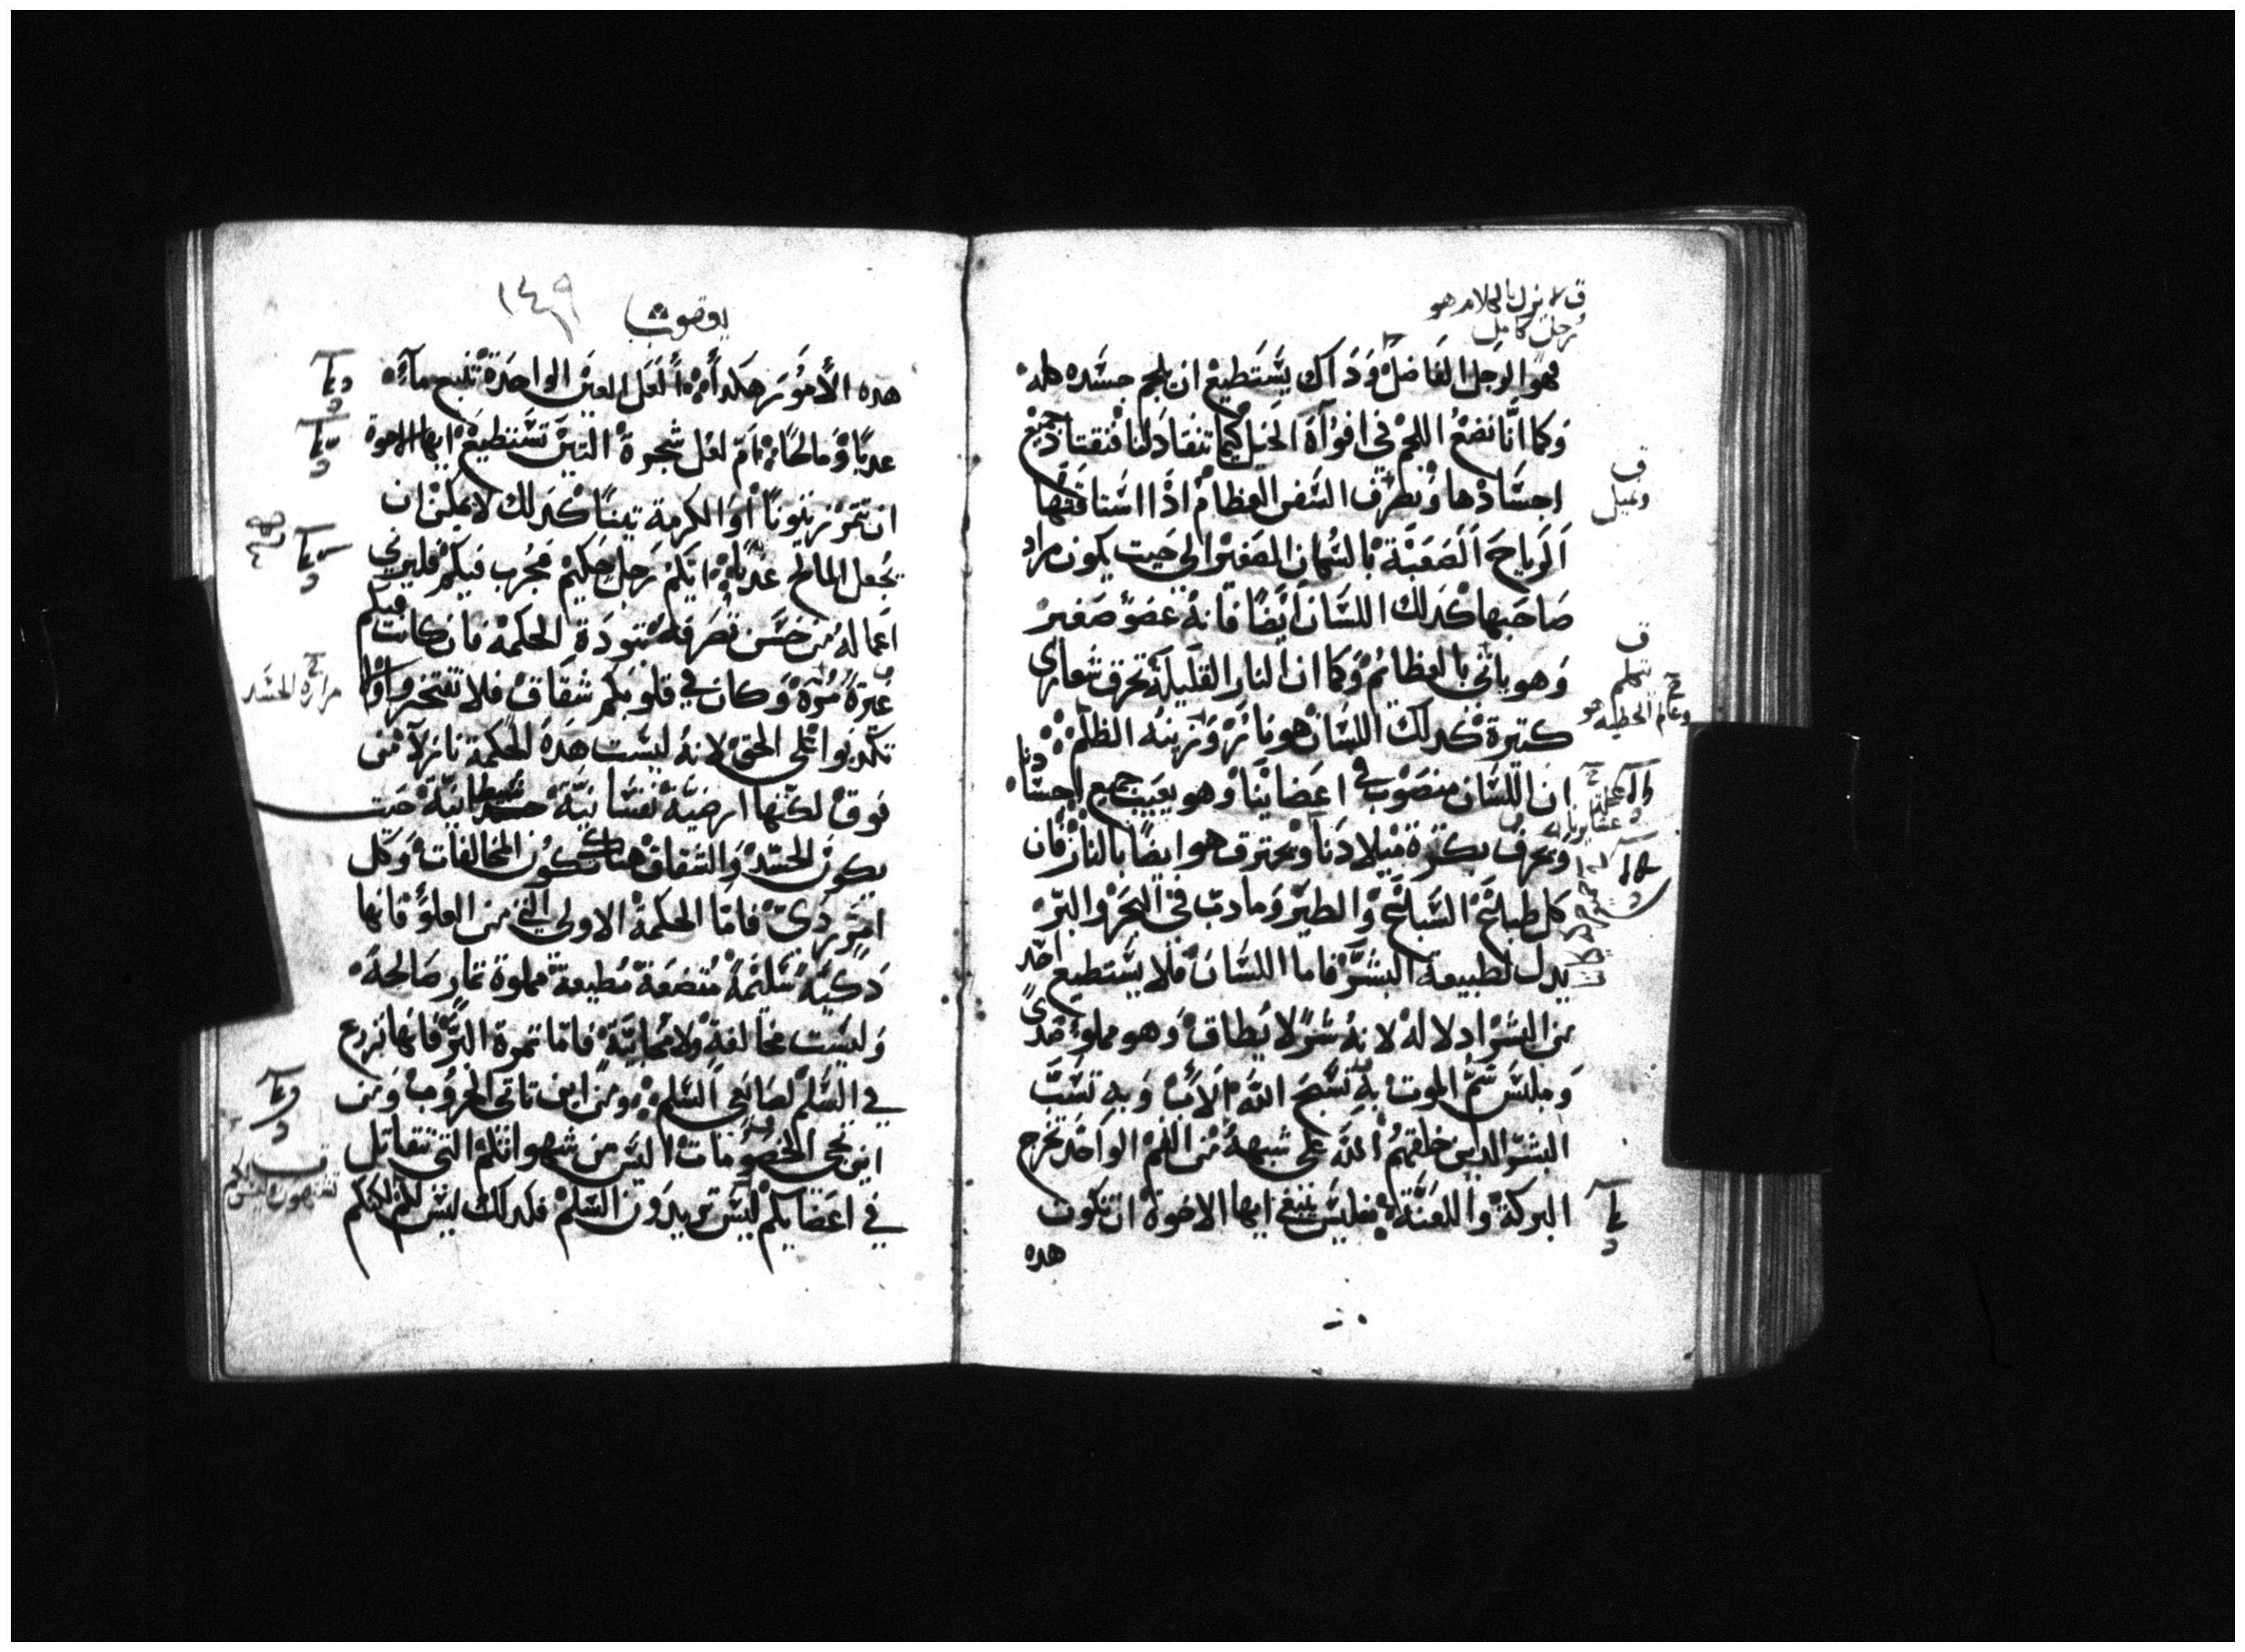 ق لا يزل بالكلام هو
رجل كامل
فهو الرجل الفاضل وذاك يستطيع ان يلجم جسده كله
وكما انا نضع اللجم في افواة الخيل كيما تنقاد لنا فنقتاد جميع
اجسادها ونصرف السفن العظام اذا استاقتها
الرياح الصعبة بالسكان الصغير الي حيت يكون مراد
صاحبها كدلك اللسان ايضا فانه عضو صغير
وهو ياتي بالعظايم وكما ان النار القليلة تحرق شعاري
كتيرة كدلك اللسان هو نار وزينه الظلم
ان اللسان منصوب في اعضاينا وهو يعيب جميع اجسادنا
ويحرف بكرة ميلادنا ويحترق هو ايضا بالنار فان
كل طبايع السباع والطير وما دب في البحر والبر
يدل لطبيعة البشر فاما اللسان فلا يستطيع احد
من البشر ادلاله لانه شر لا يطاق وهو مملو
سم الموت به نسبح الله الاب وبه نسب
البشر الدين خلقهم الله علي شبهه من الفم الواحد تخرج
البركة واللعنة فليس ينبغي ايها الاخوة ان تكون
هده
ق
وعيل
ق
وعالم الخطيه هو
يعقوب
١٤٩
هده الأمور هكدا لعل العين الواحدة تنبع مآء
عدبا ومالحا ام لعل شجرة التين تستطيع ايها الاخوة
ان تتمر زيتونا او الكرمة تينا كدلك لا يمكن ان
يجعل المالح عدبا ايكم رجل حكيم مجرب فيكم فليري
اعماله من حسن تصرفه بتودة الحكمة فان كانت فيكم
غيرة مره وكان في قلوبكم شقاق فلا تفتخروا ولا
تكدبوا علي الحق لانه ليست هده الحكمة نازلا من
فوق لكنها ارضية نفسانية شيطانية حيت
يكون الحسد والشقاق هناك تكون المخالفات وكل
امر ردي فاما الحكمة الاولي التي من العلو فانها
دكية سليمة متضعة مطيعة مملوة تمار صالحة
وليست مخالفة ولا محابية فاما تمرة البر فانها تزرع
في السلم لصانعي السلم ومن اين تاتي الحروب ومن
اين تجي الخصومات اليس من شهواتكم التي تتقاتل
في اعضايكم ليس تريدون السلم فلدلك ليس لكم لكنكم
مرارة الحسد